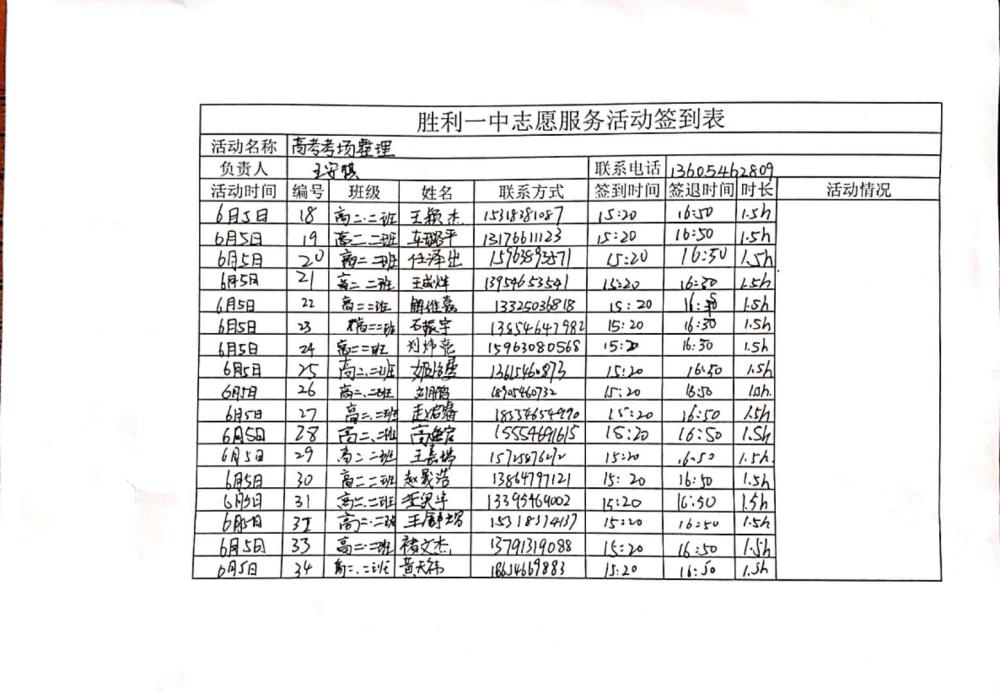 胜利一中志愿服务活动签到表
活动名称 高考考场整理
负责人 王安琪 联系电话 13605462809
活动时间 编号 班级 姓名 联系方式 签到时间 签退时间 时长 活动情况
6月5日 18 高二.二班 王颖杰 15318381087 15:20 16:50 1.5h
6月5日 19 高二.二班 车璐平 13176611123 15:20 16:50 1.5h
6月5日 20 高二.二班 任泽出 15963893571 15:20 16:50 1.5h
6月5日 21 高二.二班 王成烨 13954653541 15:20 16:50 1.5h
6月5日 22 高二二班 解维嘉 13325036818 15:20 1.5h
6月5日 23 高二二班 石振宇 13854647982 15:20 16:50 1.5h
6月5日 24 高二二班 刘炜亮 15963080568 15:20 16:50 1.5h
6月5日 25 高二.二班 13615460873 15:20 16:50 1.5h
6月5日 26 高二.二班 刘鹏 18905460732 15:20 16:50
6月5日 27 高二.二班 18354654990 15:20 16:50 1.5h
6月5日 28 高二.二班 15554691615 15:20 16:50 1.5h
6月5日 29 高二二班 王嘉瑞 15:20 16:50 1.5h.
6月5日 30 高二二班 赵晟浩 13864797121 15:20 16:50 1.5h
6月5日 31 高二.二班 13395469002 15:20 16:50 1.5h
6月5日 32 高二.二班 15318374137 15:20 16:50 1.5h
6月5日 33 高二.二班 褚文杰 13791319088 15:20 16:50 1.5h
6月5日 34 高二.二班 黄天祎 18654669883 15:20 16:50 1.5h